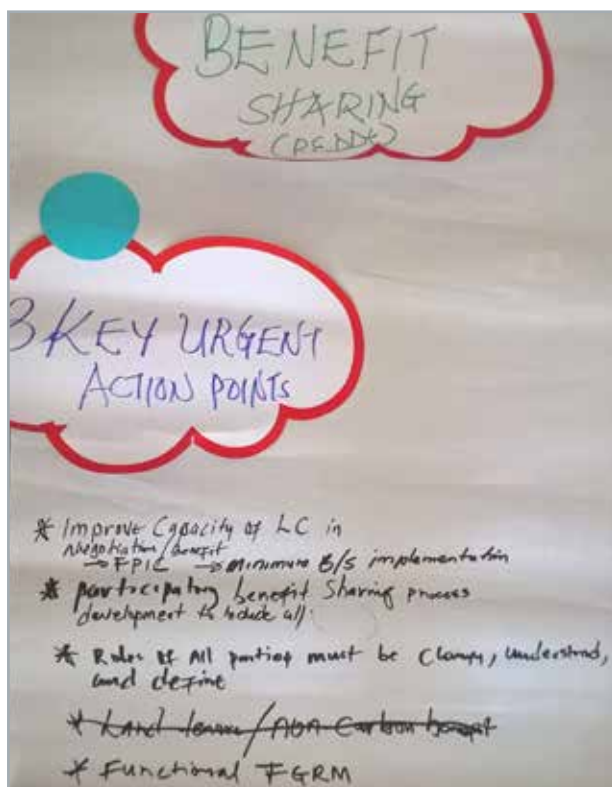 BENEFIT
SHARING
(REDD+)
3 KEY URGENT
ACTION POINTS
* Improve Capacity of LC in
Negotiation/benefit
→ FPIC → minimum B/S implementation
* participatory benefit Sharing process
development to include all.
* Roles of All parties must be
understand,
and define
* Land tenure / Non Carbon benefit
* Functional FGRM